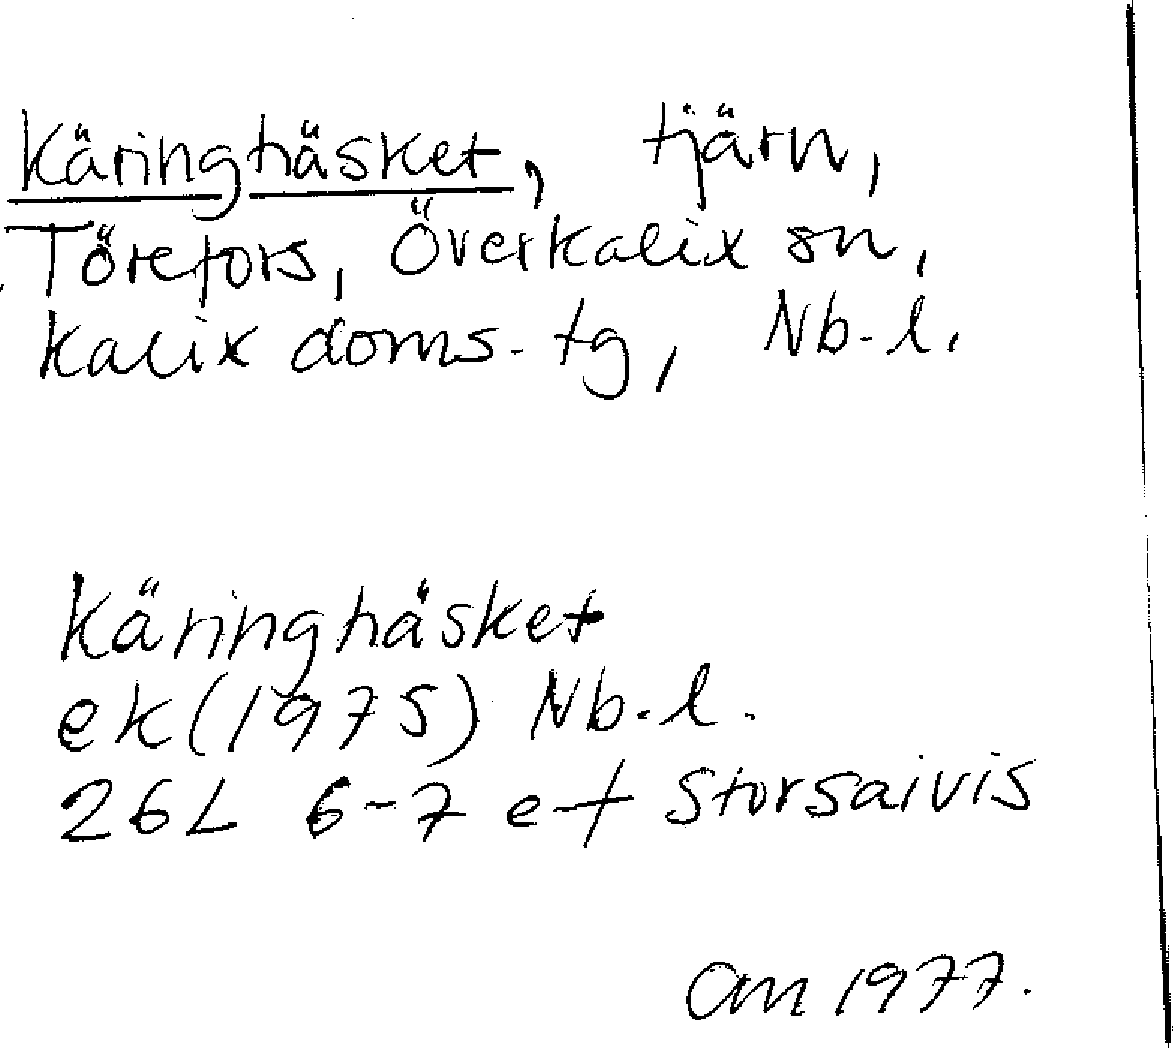 Käringhäsket, tjärn,
Törefors, Överkalix sn,
Kalix doms. tg, Nb. l.
Käringhäsket
ek (1975) Nb. l.
26L 6-7 e-f Storsaivis
am 1977.